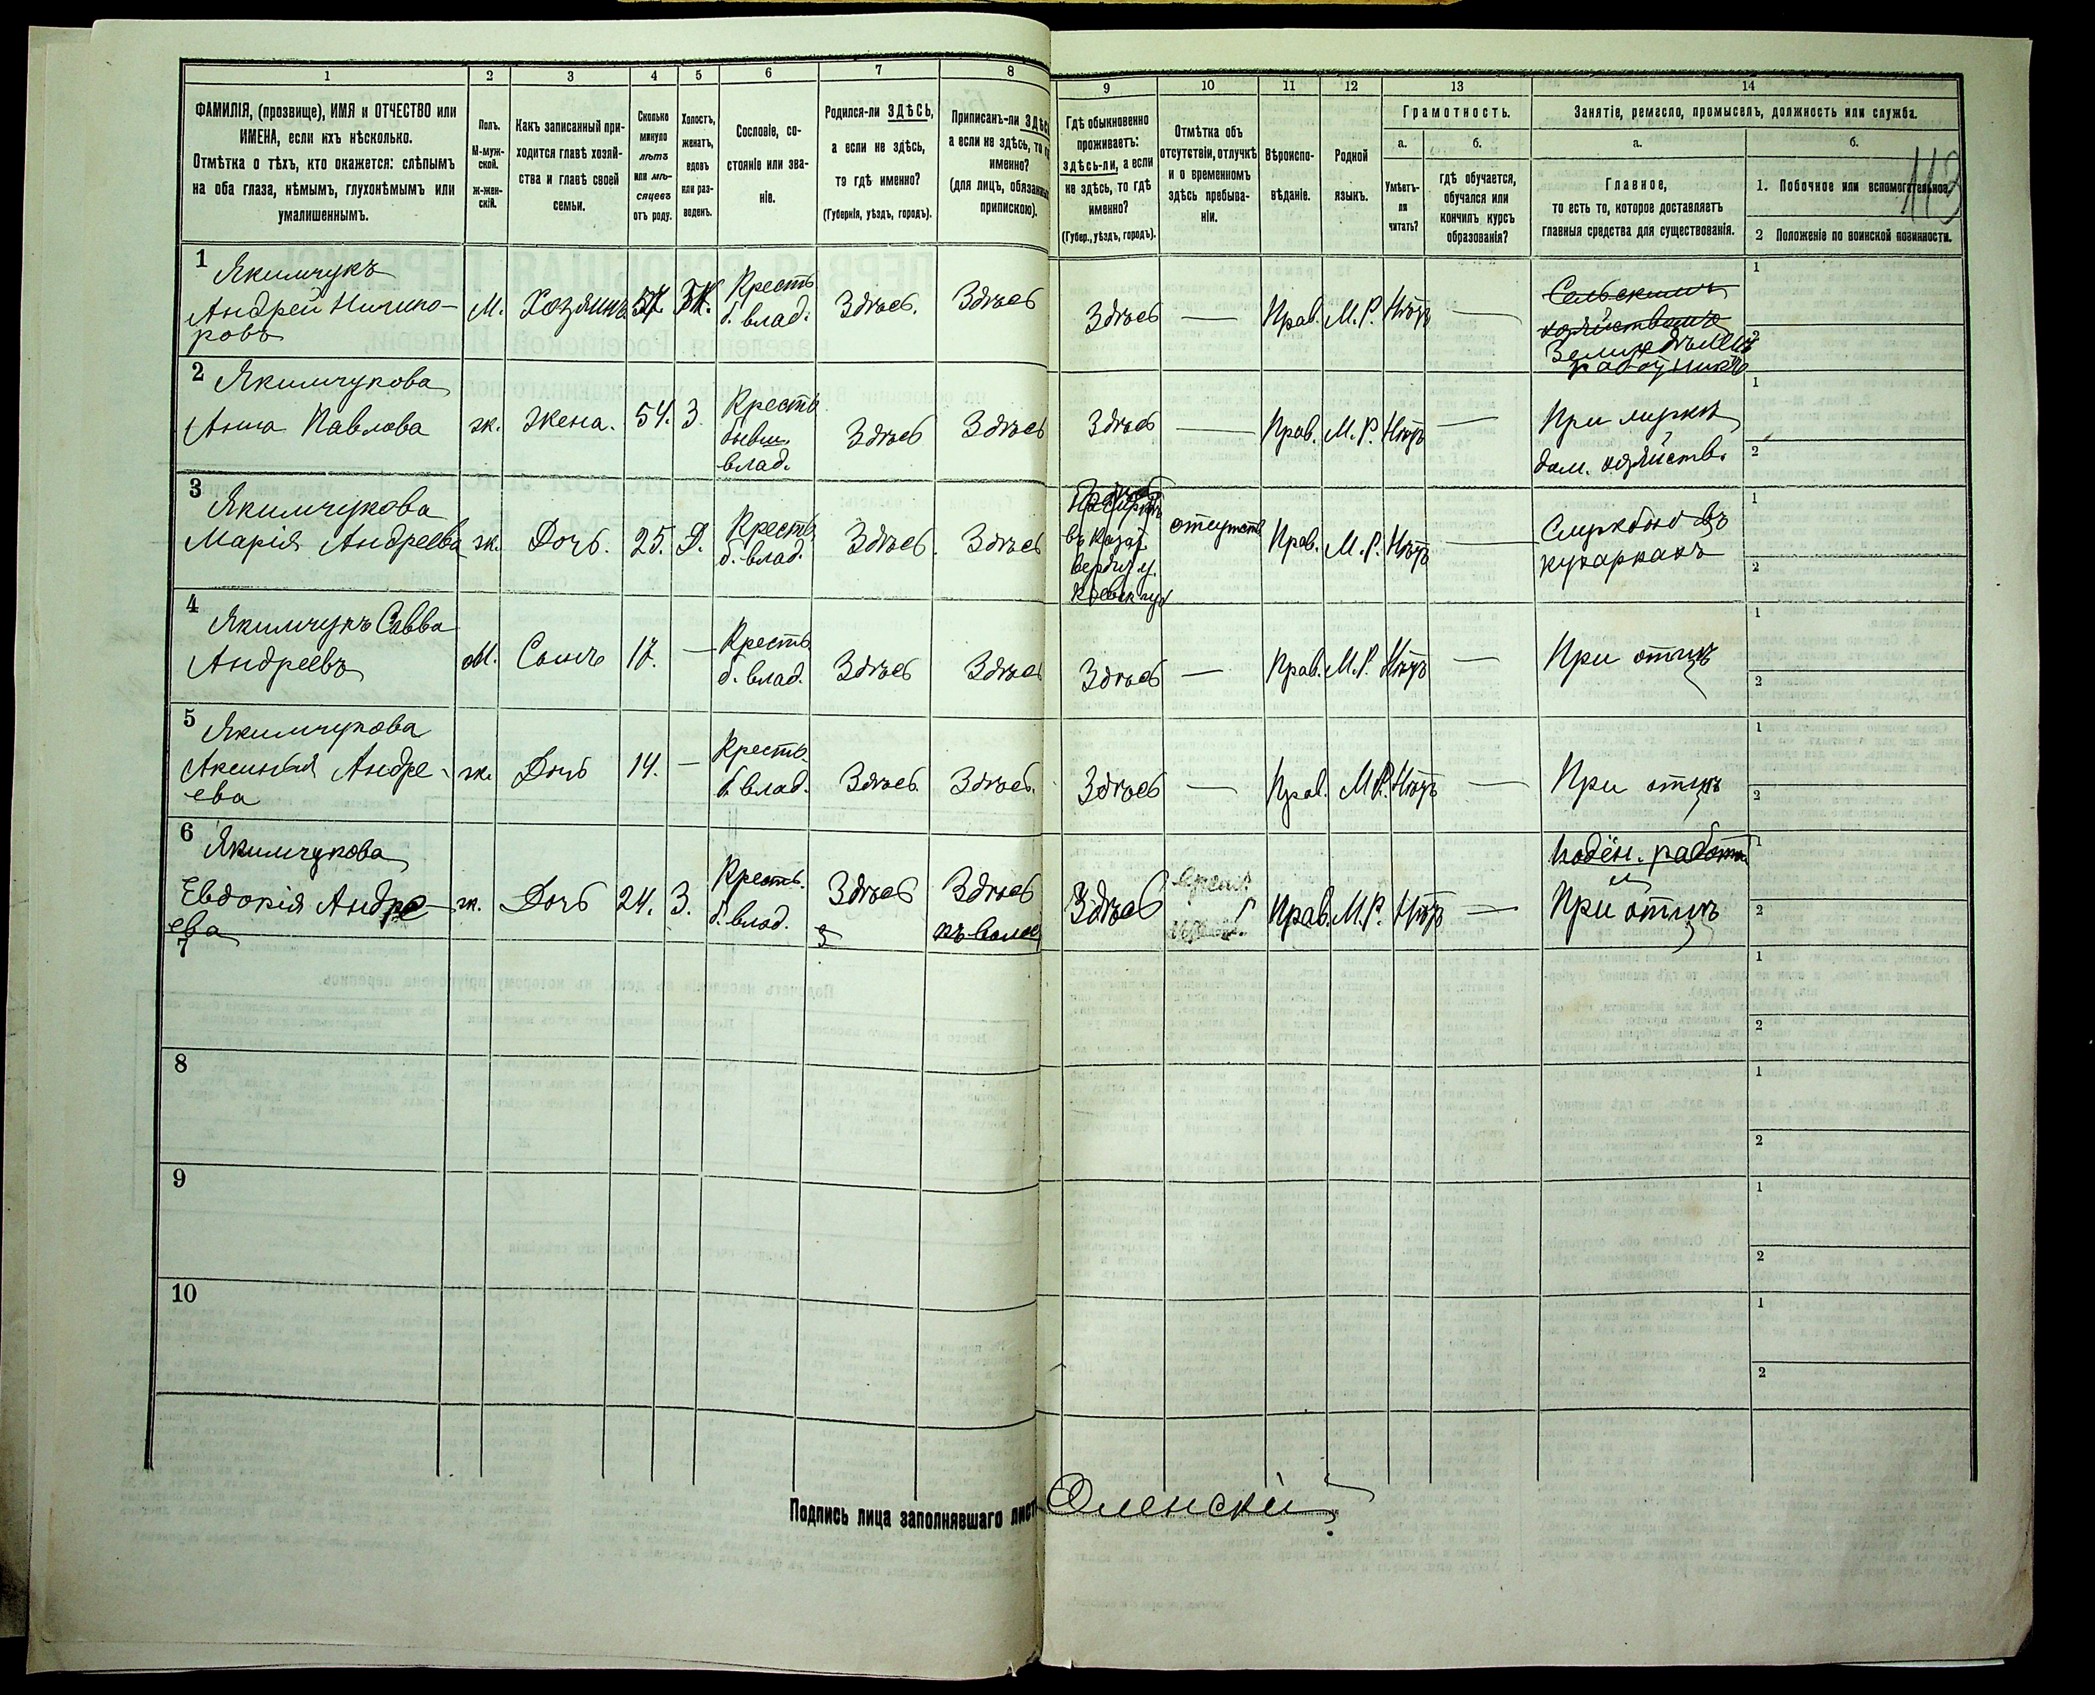 1 2 3 4 5 6 7 8 9 10 11 12 13 14
ФАМИЛІЯ, (прозвище), ИМЯ и ОТЧЕСТВО или
ИМЕНА, если ихъ нѣсколько.
Отмѣтка о тѣхъ, кто окажется: слѣпымъ
на оба глаза, нѣмымъ, глухонѣмымъ или
умалишеннымъ.
Полъ.
М-муж-
ской.
ж-жен-
скій.
Какъ записанный при-
ходится главѣ хозяй-
ства и главѣ своей
семьи.
Сколько
минуло
лѣтъ
или мѣ-
сяцевъ
отъ роду.
Холостъ,
женатъ,
вдовъ
или раз-
веденъ.
Сословіе, со-
стояніе или зва-
ніе.
Родился-ли ЗДѢСЬ,
а если не здѣсь,
то гдѣ именно?
(Губернія, уѣздъ, городъ).
Приписанъ-ли ЗДѢСЬ
а если не здѣсь, то
именно?
(для лицъ,
припискою).
Гдѣ обыкновенно
проживаетъ:
здѣсь-ли, а если
не здѣсь, то гдѣ
именно?
(Губер., уѣздъ, городъ).
Отмѣтка объ
отсутствіи, отлучкѣ
и о временномъ
здѣсь пребыва-
ніи.
Вѣроиспо-
вѣданіе.
Родной
языкъ.
Грамотность.
а.
Умѣетъ-
ли
читать?
б.
гдѣ обучается,
обучался или
кончилъ курсъ
образованія?
Занятіе, ремесло, промыселъ, должность или служба.
а.
Главное,
то есть то, которое доставляетъ
главныя средства для существованія.
б.
1. Побочное или вспомогательное.
2 Положеніе по воинской повинности.
113
1 Якимчукъ
Андрей Ничипо-
ровъ
М. Хозяинъ 57. Ж. Кресть
б. влад. Здѣсь. Здѣсь Здѣсь — Прав. М.Р. Нѣтъ —
Сельскимъ
хозяйствомъ
1
2
2 Якимчукова
Анна Павлова
ж. жена. 54. З. Кресть
бывш.
влад. Здѣсь Здѣсь Здѣсь — Прав. М.Р. Нѣтъ —
При мужѣ
дом. хозяйств.
1
2
3 Якимчукова
Марія Андреева
ж. Дочь. 25. Д. Кресть
б. влад. Здѣсь. Здѣсь
отсутств Прав. М.Р. Нѣтъ —
Службою въ
кухаркахъ
1
2
4 Якимчукъ Савва
Андреевъ
М. Сынъ 17. — Кресть
б. влад. Здѣсь Здѣсь Здѣсь — Прав. М.Р. Нѣтъ —
При отцѣ
1
2
5 Якимчукова
Аксинья Андре-
ева
ж. Дочь 14. — Кресть.
б. влад. Здѣсь Здѣсь. Здѣсь — Прав. М.Р. Нѣтъ —
При отцѣ
1
2
6 Якимчукова
Евдокія Андре-
ева
ж. Дочь 24. З. Кресть.
б. влад. Здѣсь Здѣсь Здѣсь Прав. М.Р. Нѣтъ —
При отцѣ
1
2
7
1
2
8
1
2
9
1
2
10
1
2
Подпись лица заполнявшаго листъ